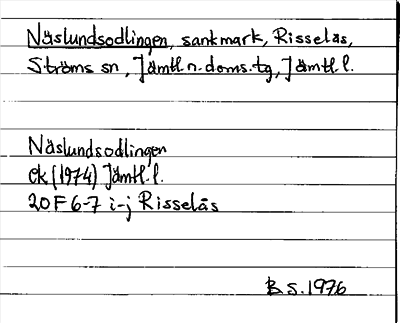 Näslundsodlingen, sankmark, Risselås,
Ströms sn, Jämtl. n. doms. tg, Jämtl. l.
Näslundsodlingen
ek (1974) Jämtl. l.
20F 6-7 i-j Risselås
B S. 1976